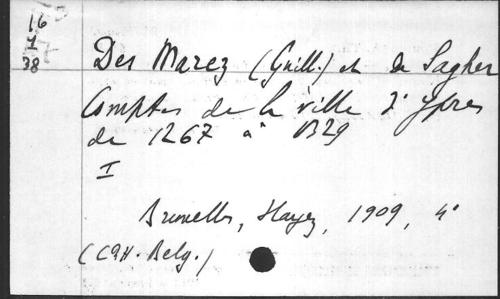 16
I
38
Des Marez (Guill.) et de Sagher
Comptes de la ville d'Ypres
de 1267 à 1329
I
Bruxelles, Hayez, 1909, 4°
(CRH. Belg.)